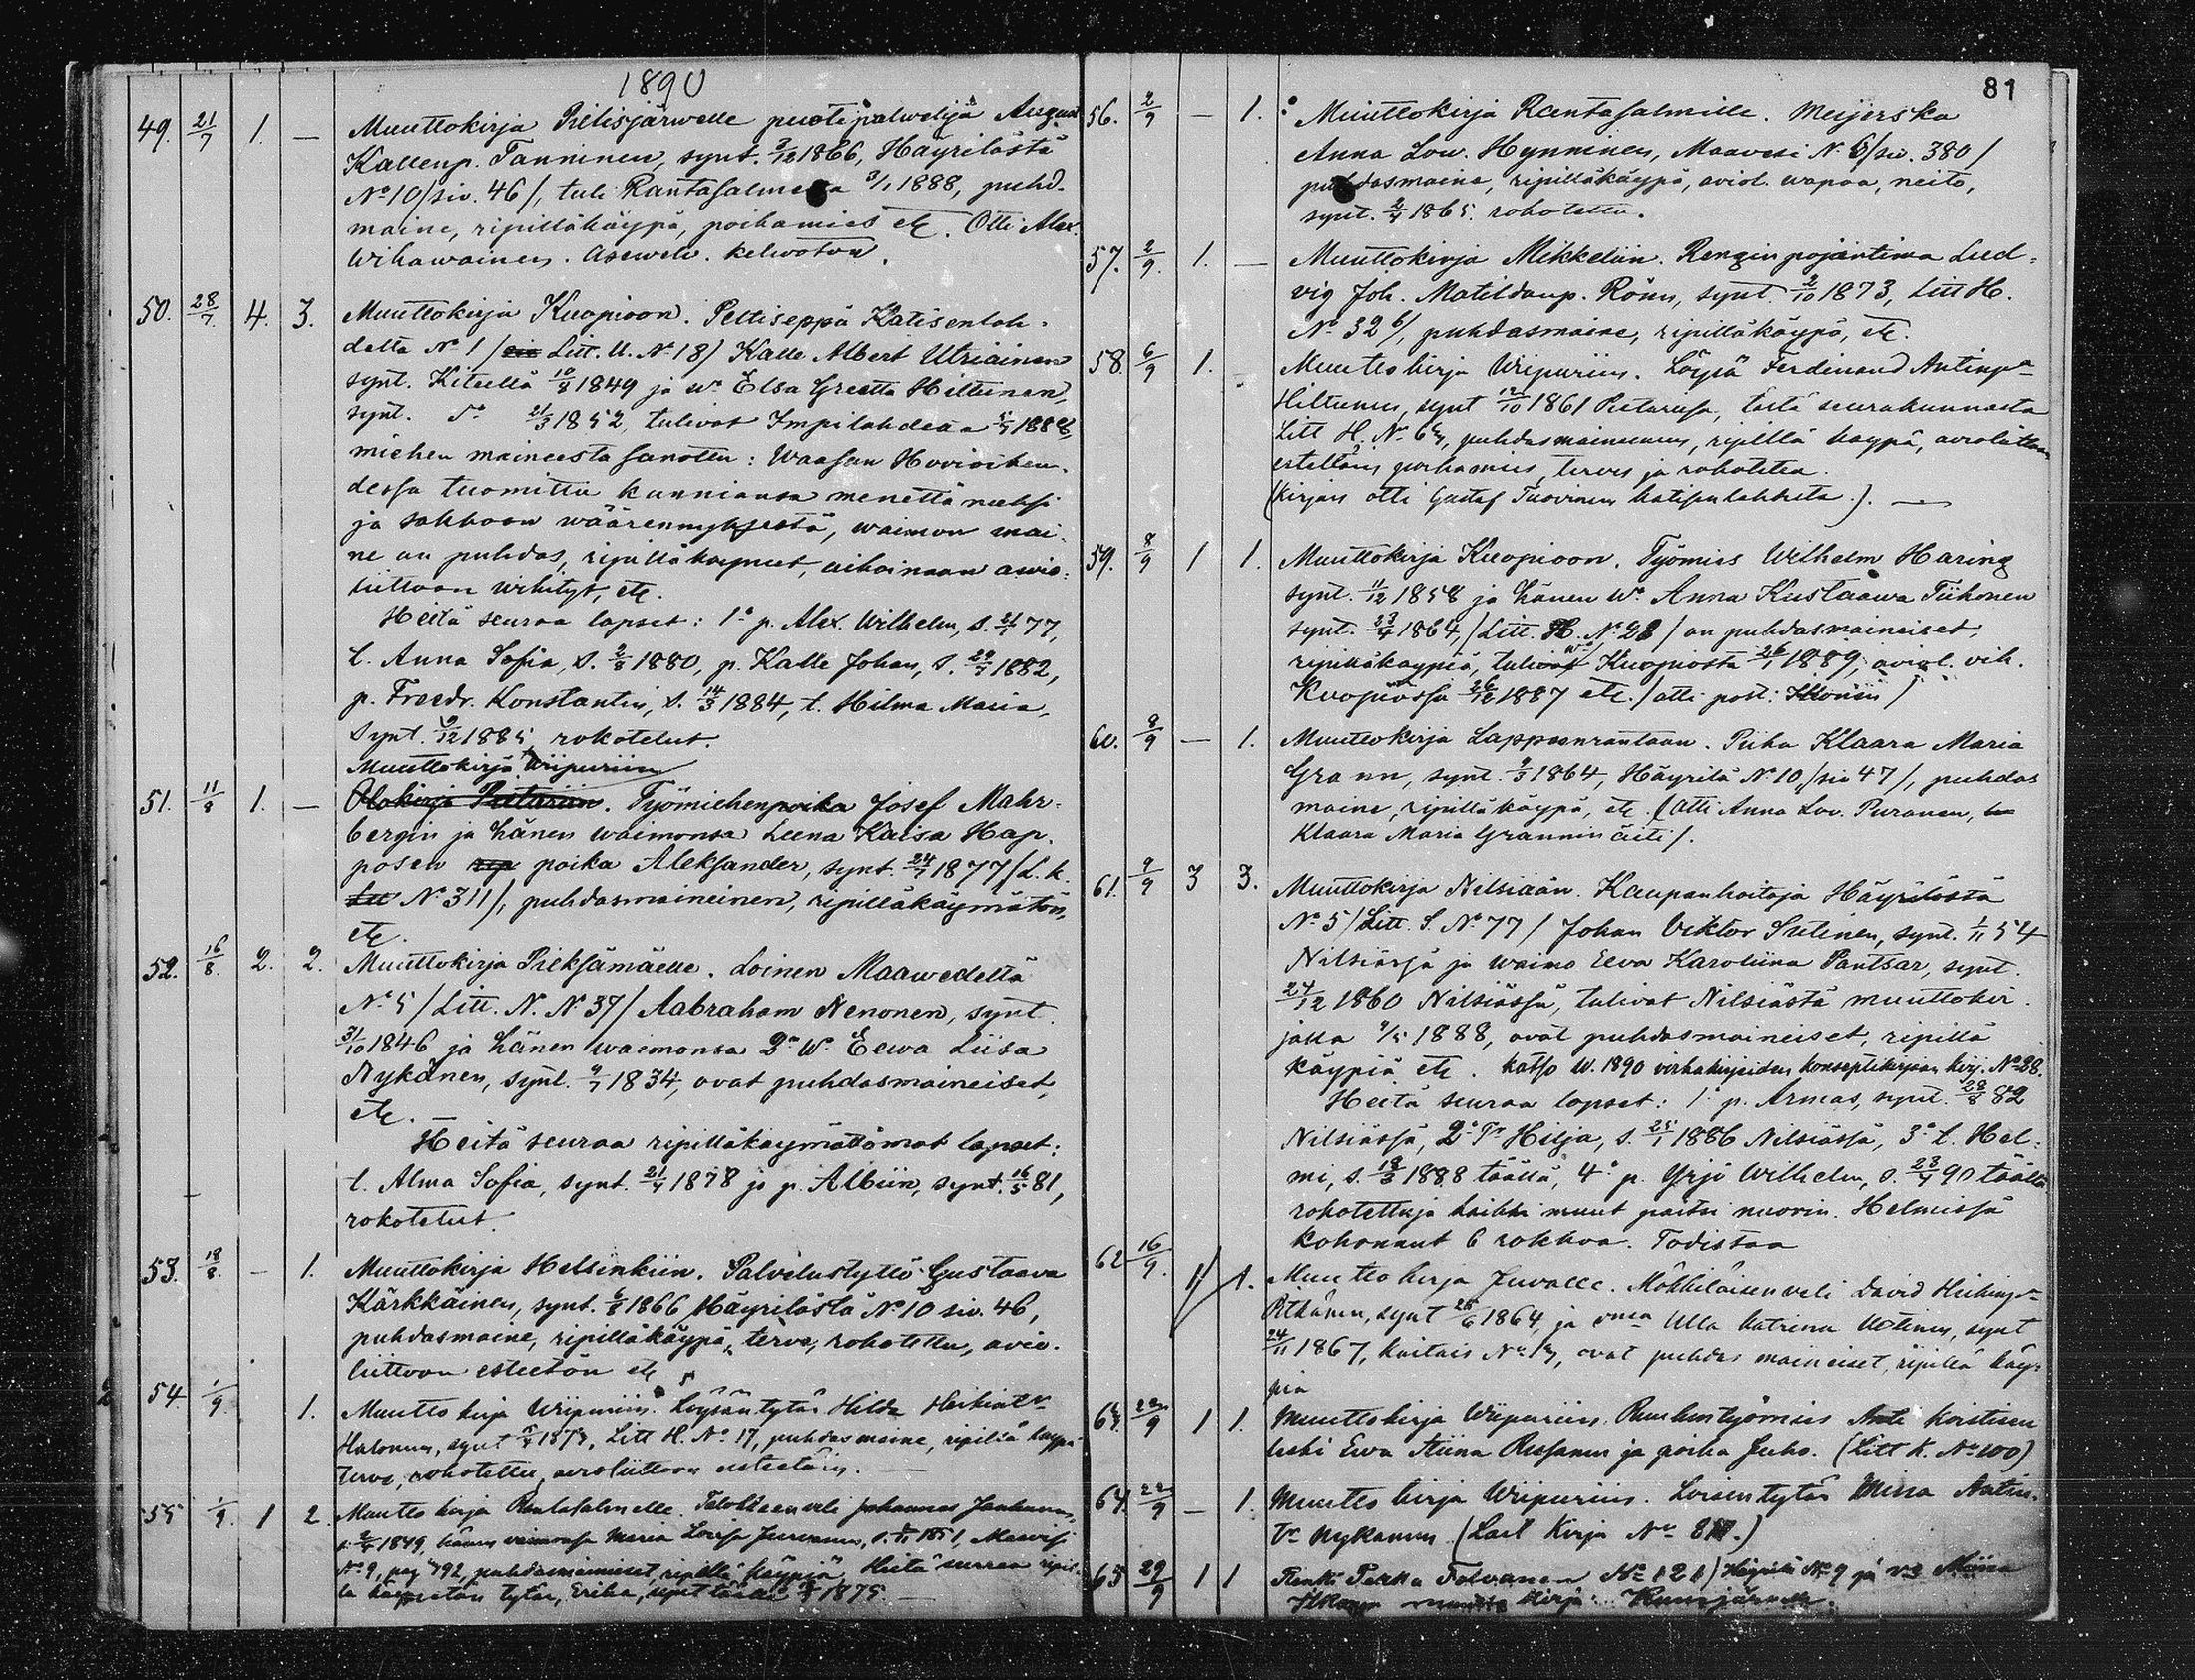 1890
49. 21/7 1. — Muuttokirja Pielisjärwelle puotipalwelija August
Kallenp. Tanninen, synt. 3/12 1866, Häyrilästä
No 10 /siv. 46/, tuli Rantasalmelta 3/1 1888, puhd.
maine, ripilläkäypä, poikamies etc. Otti Alex.
Wihawainen. Asewelv. kelwoton.
50. 28/7. 4. 3. Muuttokirja Kuopioon. Peltiseppä Katisenlah-
delta No 1 / Litt. U. No 18/ Kalle Albert Utriainen
synt. Kiteellä 10/8 1849 ja wo Elsa Greetta Hiltunen,
synt. do 21/3 1852, tulivat Impilahdelta 1888,
miehen maineesta sanottu: Waasan Hovioikeu-
dessa tuomittu kunniansa menettäneeksi
ja sakkoon wäärennyksestä, waimon mai-
ne on puhdas, ripilläkäyneet, aikoinaan awio-
liittoon wihityt, etc.
Heitä seuraa lapset: 1o p. Alex. Wilhelm, s. 77,
t. Anna Sofia, s. 2/8 1880, p. Kalle Johan, s. 1882,
p. Freedr. Konstantin, s. 14/3 1884, t. Hilma Maria,
synt. 9/12 1885 rokotetut.
Muuttokirja Wiipuriin
51. 11/8 1. — Olokirja Pietariin. Työmiehenpoika Josef Mahr-
bergin ja hänen waimonsa Leena Kaisa Hap-
posen poika Aleksander, synt. 24/7 1877 /L. k.
No 311/, puhdasmaineinen, ripilläkäymätön,
etc.
52. 16/8. 2. 2. Muuttokirja Pieksämäelle. Loinen Maawedeltä
No 5 / Litt. N. No 37/ Aabraham Nenonen, synt.
31/10 1846 ja hänen waimonsa 2o Wo Eewa Liisa
Nykänen, synt. 9/7 1834, ovat puhdasmaineiset,
etc.
Heitä seuraa ripilläkäymättömät lapset:
t. Alma Sofia, synt. 21/4 1878 ja p. Albiin, synt. 16/5 81,
rokotetut.
53. 18/8. — 1. Muuttokirja Helsinkiin. Palvelustyttö Gustaava
Kärkkäinen, synt. 6/8 1866 Häyrilästä No 10 siv. 46,
puhdasmaine, ripilläkäypä, terve, rokotettu, avio-
liittoon esteetön etc
54. 1/9. 1. Muutto kirja Wiipuriin. Löysän tytär Hilda Heikintr
Halonen, synt Litt H. No 17, puhdasmaine, ripillä käypä
terve, rokotettu, avioliittoon esteetöin. —
55 1/9. 1 2. Muutto kirja Rantasalmelle. Talollisen veli Johannes
s. 1849, hänen waimonsa Maria Lovisa s. 1851, Maavesi
No 9, pag 792, puhdasmaineiset, ripillä käypiä. Heitä seuraa ripil-
lä käymätön tytär, Erika, synt täällä 1875. —
81
56. 2/9 — 1. Muuttokirja Rantasalmille. Meijerska
Anna Low. Hynninen, Maavesi No 6 /siv. 380/
puhdasmaine, ripilläkäypä, aviol. wapaa, neito,
synt. 2/4 1865. rokotettu.
57. 2/9. 1. — Muuttokirja Mikkeliin. Rengin pojäntima Lud-
vig Joh. Matildanp. Röun, synt. 2/10 1873, Litt H.
No 32 b/, puhdasmaine, ripilläkäypä, etc.
58. 6/9 1. Muutto kirja Wiipuriin. Löysä Ferdinand Antinpa
Hiltunen, synt 12/10 1861 Pietarissa, tästä seurakunnasta
Litt H. No 6, puhdasmaineinen, ripillä käypä, avioliittoon
esteetöin poikamies, terve ja rokotettu.
(Kirjan otti Gustaf Tuovinen Katisenlahdesta.). —
59. 8/9 1 1. Muuttokirja Kuopioon. Työmies Wilhelm Haring
synt. 11/12 1858 ja hänen wo Anna Kustaawa Tiihonen
synt. 23/4 1864, /Litt. H. No 28/ on puhdasmaineiset,
ripilläkäypiä, tulivat Kuopiosta 26/1 1889, aviol. vih.
Kuopiossa 26/12 1887 etc. /otti post: Ikonen/
60. 8/9 — 1. Muuttokirja Lappeenrantaan. Piika Klaara Maria
Grann, synt. 9/3 1864, Häyrilä No 10, /siv 47/, puhdas
maine, ripilläkäypä, etc. (Otti Anna Lov. Puranen,
Klaara Maria Grannin äiti/.
61. 9/9 3 3. Muuttokirja Nilsiään. Kaupanhoitaja Häyrilästä
No 5 / Litt. S. No 77/ Johan Viktor Sutinen, synt. 1/11 54
Nilsiässä ja waimo Eeva Karoliina Pantsar, synt.
24/12 1860 Nilsiässä, tulivat Nilsiästä muuttokir-
jalla 1888, ovat puhdasmaineiset, ripillä
käypiä etc. Katso W. 1890 virkakirjeiden konseptikirjaan kirj. No 28.
Heitä seuraa lapset: 1o p. Armas, synt. 28/8 82
Nilsiässä, 2o Tr Hilja, s. 25/1 1886 Nilsiässä, 3o t. Hel-
mi, s. 18/3 1888 täällä, 4o p. Yrjö Wilhelm, s. 23/4 90 täällä
rokotettuja kaikki muut paitsi nuorin. Helmissä
kohonnut 6 rokkoa. Todistaa
62 16/9. 1 1. Muutto kirja Juvalle. Mökkiläisen veli David Heikinpa
Pitkänen, synt 25/6 1864, ja vmo Ulla Katriina Uotinen, synt
24/11 1867, Kaitais No 1, ovat puhdas maineiset, ripillä käy-
piä
63. 22/9 1 1. Muuttokirja Wiipuriin. Ruukintyömies Antti Koistisen
leski Eeva Stiina Russanen ja poika Juho. (Litt K. No 100)
64. 22/9 — 1. Muutto kirja Wiipuriin. Loisen tytär Miina Antin-
tr Nykänen (Last Kirja No 817.)
65 29/9 1 1 Renki Pekka Tolvanen No 121 / Häyrilä No 9 ja vmo Miina
Ikonen muutto kirja